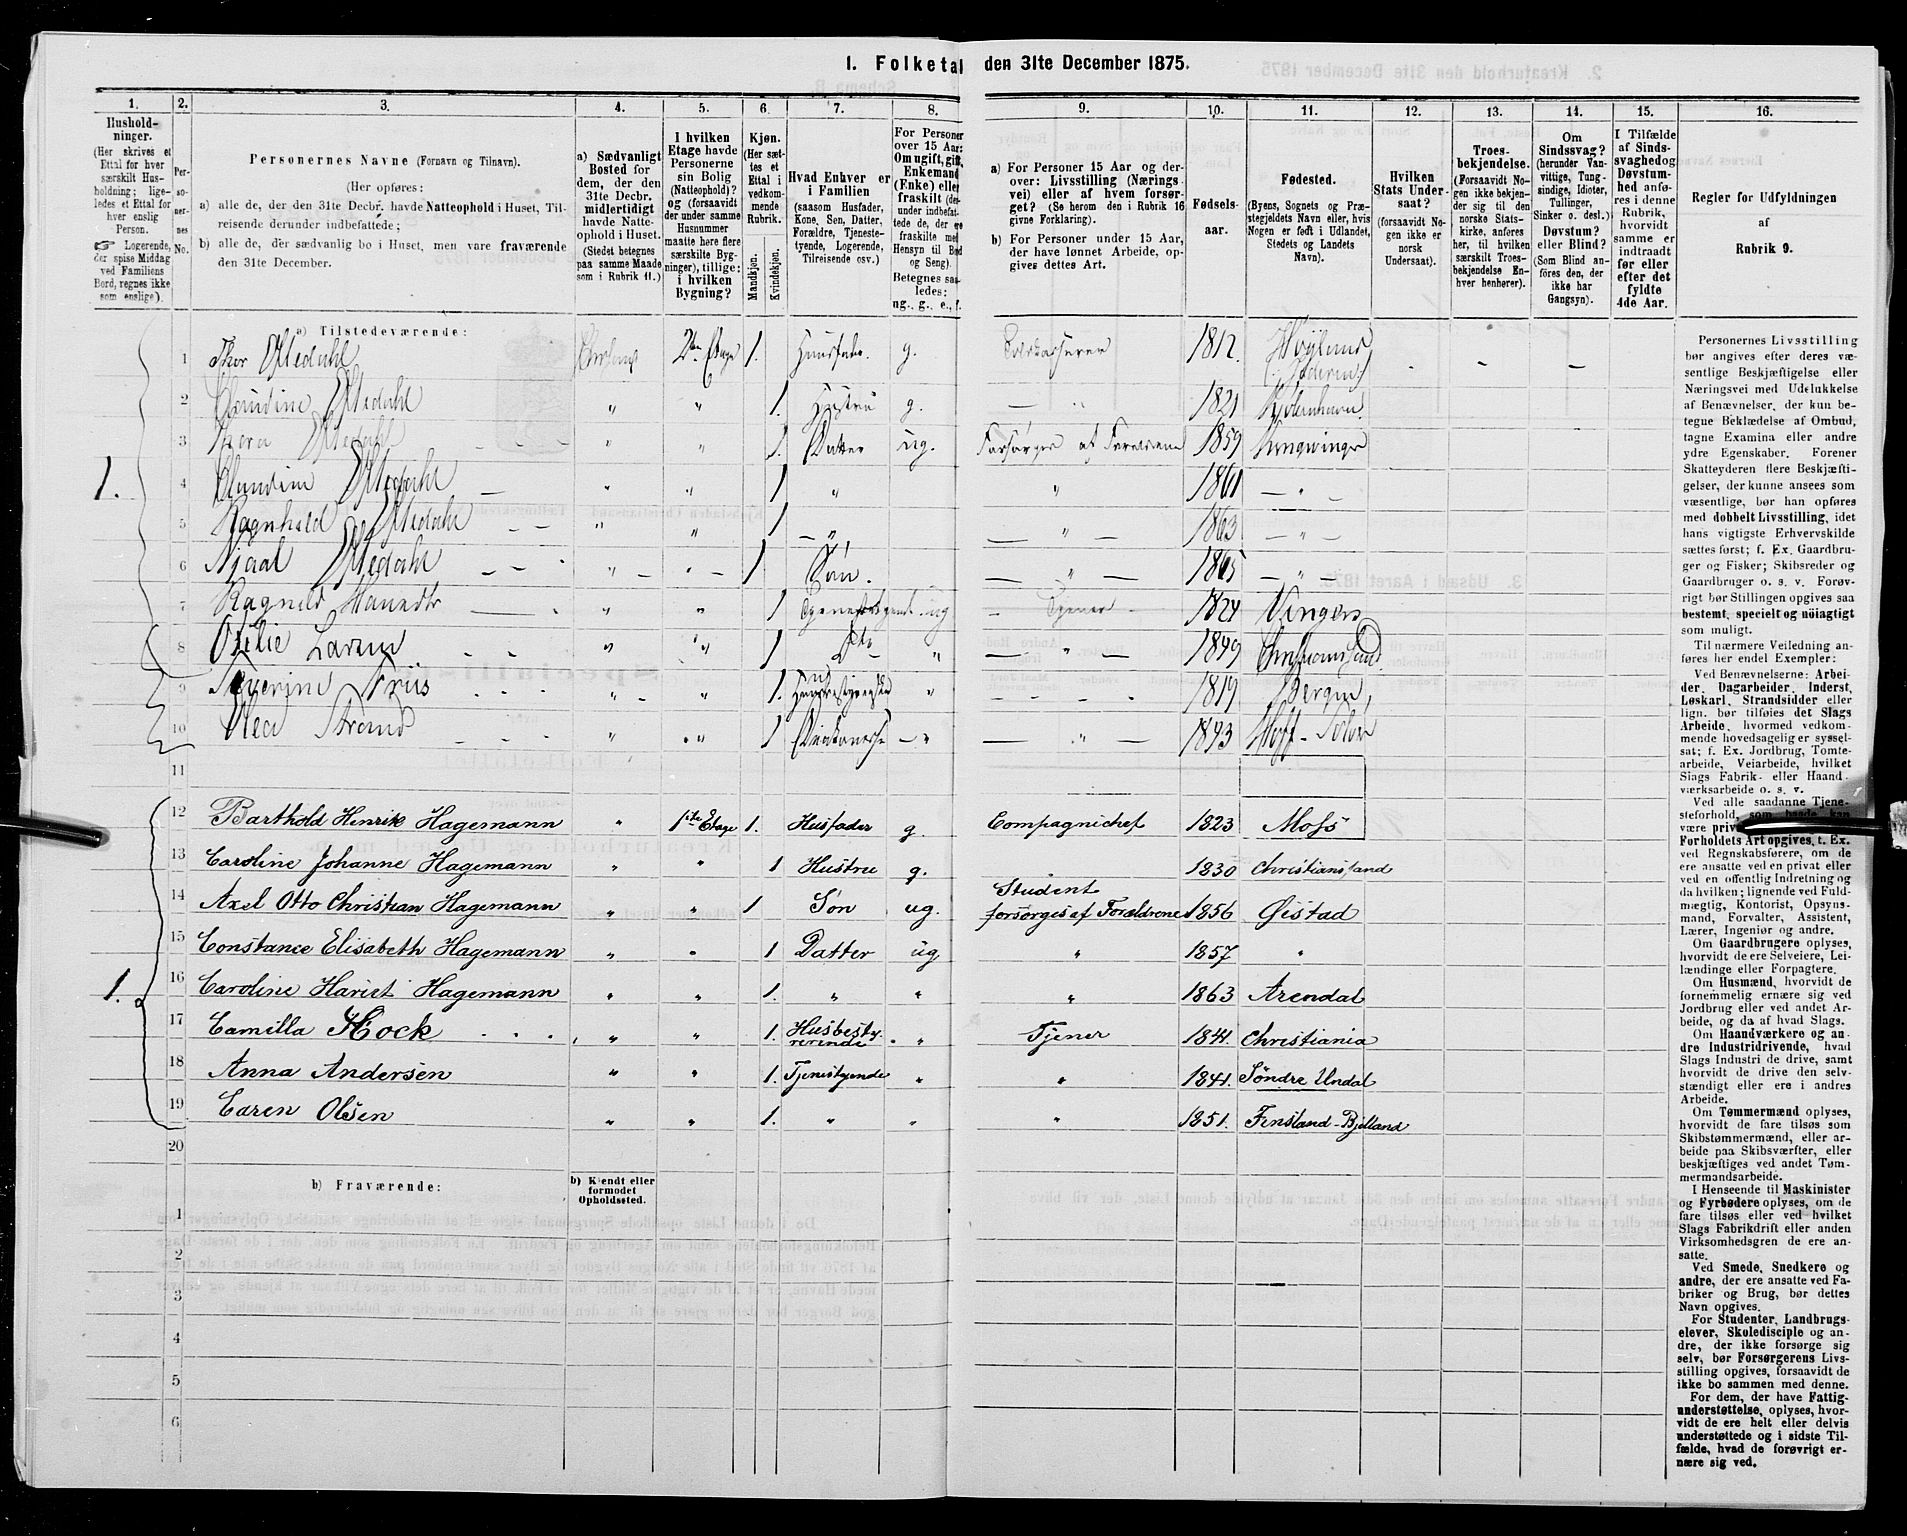 1. Folketal den 31te December 1875.
1.
Hushold-
ninger.
(Her skrives et
Ettal for hver
særskilt Hus-
holdning; lige-
ledes et Ettal for
hver enslig
Person.
☞ Logerende,
der spise Middag
ved Familiens
Bord, regnes ikke
som enslige).
2.
Per-
so-
ner-
nes
No.
3.
Personernes Navne (Fornavn og Tilnavn).
(Her opføres:
a) alle de, der den 31te Decbr. havde Natteophold i Huset, Til-
reisende derunder indbefattede;
b) alle de, der sædvanlig bo i Huset, men vare fraværende
den 31te December.
4.
a) Sædvanligt
Bosted for
dem, der den
31te Decbr.
midlertidigt
havde Natte-
ophold i Huset.
(Stedet betegnes
paa samme Maade
som i Rubrik 11.)
5.
I hvilken
Etage havde
Personerne
sin Bolig
(Natteophold)?
og (forsaavidt
der under samme
Husnummer
maatte høre flere
særskilte Byg-
ninger), tillige:
i hvilken
Bygning?
6.
Kjøn.
(Her sæt-
tes et
Ettal i
vedkom-
mende
Rubrik.
Mandkjøn.
Kvindekjøn.
7.
Hvad Enhver er
i Familien
(saasom Husfader,
Kone, Søn, Datter,
Forældre, Tjeneste-
tyende, Logerende,
Tilreisende osv.)
8.
For Personer
over 15 Aar:
Om ugift, gift,
Enkemand
(Enke) eller
fraskilt
Betegnes saa-
ledes:
ug., g., e., f.
9.
a) For Personer 15 Aar og der-
over: Livsstilling (Nærings-
vei) eller af hvem forsør-
get? (Se herom den i Rubrik 16
givne Forklaring).
b) For Personer under 15 Aar,
der have lønnet Arbeide, op-
gives dettes Art.
10.
Fødsels-
aar.
11.
Fødested.
(Byens, Sognets og Præ-
stegjeldets Navn eller, hvis
Nogen er født i Udlandet,
Stedets og Landets
Navn).
12.
Hvilken
Stats Under-
saat?
(forsaavidt No-
gen ikke er
norsk
Undersaat).
13.
Troes-
bekjendelse.
(Forsaavidt No-
gen ikke bekjen-
der sig til den
norske Stats-
kirke, anføres
her, til hvilken
særskilt Troes-
bekjendelse En-
hver henhører).
14.
Om
Sindssvag?
(herunder Van-
vittige, Tung-
sindige, Idioter,
Tullinger,
Sinker o. desl.)
Døvstum?
eller Blind?
(Som Blind an-
føres den, der
ikke har
Gangsyn).
15.
I Tilfælde
af Sinds-
svaghed og
Døvstum-
hed anfø-
res i denne
Rubrik,
hvorvidt
samme er
indtraadt
før eller
efter det
fyldte
4de Aar.
16.
Regler for Udfyldningen
af
Rubrik 9.
a) Tilstedeværende:
1 Thor Oftedahl 2den Etage 1. Huusfader g. 1812.
2 Oftedahl " " 1. Hustru g. — " 1821 Kjøbenhavn
3 Thora Oftedahl " " 1. Datter ug. Forsørges af Forældrene 1859 Kongsvinger
1.
4 Oftedahl — " " 1 " " 1861 — " —
5 Ragnhild Oftedahl — — " " 1 — " — — " — 1863 — " —
6 Njaal Oftedahl — — " — " — 1 Søn. — " — 1865 — " —
7 " " 1 ug — Tjener — 1824 Vinger
8 Otilie Larsen — — " " 1 Dto " — " — 1849 Christianssand
9 Severine Friis " — " 1. " — " — 1819 Bergen,
10 Olea Strand " " 1 — " — " — 1843
11
12 Barthold Henrik Hagemann " 1ste Etage 1. Husfader g. Compagnichef 1823 Moss
13 Caroline Johanne Hagemann " " 1 Hustru g. 1830 Christianssand
14 Axel Otto Christian Hagemann " " 1 Søn ug. Student forsørges af Forældrene 1856 Øistad
15 Constance Elisabeth Hagemann " " 1 Datter ug " 1857 "
1.
16 Caroline Hariet Hagemann " " 1. " " " 1863 Arendal
17 Camilla Hock " " 1. Husbesty-
rerende " Tjener 1844. Christiania
18 Anna Andersen " " 1. Tjenestyende " " 1841. Søndre Undal
19 Caren Olsen " " 1. " " " 1851. Finsland-Bjelland
20
b) Fraværende:
b) Kjendt eller
formodet
Opholdssted.
1
2
3
4
5
6
Personernes Livsstilling
bør angives efter deres væ-
sentlige Beskjæftigelse eller
Næringsvei med Udelukkelse
af Benævnelser, der kun be-
tegne Beklædelse af Ombud,
tagne Examina eller andre
ydre Egenskaber. Forener
Skatteyderen flere Beskjæfti-
gelser, der kunne ansees som
væsentlige, bør han opføres
med dobbelt Livsstilling, idet
hans vigtigste Erhvervskilde
sættes først; f. Ex. Gaardbru-
ger og Fisker; Skibsreder og
Gaardbruger o. s. v. Forøv-
rigt bør Stillingen opgives saa
bestemt, specielt og nøiagtigt
som muligt.
Til nærmere Veiledning an-
føres her endel Exempler:
Ved Benævnelserne: Arbei-
der, Dagarbeider, Inderst,
Løskarl, Strandsidder eller
lign. bør tilføies det Slags
Arbeide, hvormed vedkom-
mende hovedsagelig er syssel-
sat; f. Ex. Jordbrug, Tomte-
arbeide, Veiarbeide, hvilket
Slags Fabrik- eller Haand-
værksarbeide o. s. v.
Ved alle saadanne Tjene-
steforhold, som baade kan
være
Forholdets Art opgives, t. Ex.
ved Regnskabsførere, om de
ere ansatte ved en privat eller
ved en offentlig Indretning og
da hvilken; lignende ved Fuld-
mægtig, Kontorist, Opsyns-
mand, Forvalter, Assistent,
Lærer, Ingeniør og andre.
Om Gaardbrugere oplyses,
hvorvidt de ere Selveiere, Lei-
lændinge eller Forpagtere.
Om Husmænd, hvorvidt de
fornemmelig ernære sig ved
Jordbrug eller ved andet Ar-
beide, og da af hvad Slags.
Om Haandværkere og an-
dre Industridrivende, hvad
Slags Industri de drive, samt
hvorvidt de drive den selv-
stændigt eller ere i andres
Arbeide.
Om Tømmermænd oplyses,
hvorvidt de fare tilsøs som
Skibstømmermænd, eller ar-
beide paa Skibsværfter, eller
beskjæftiges ved andet Tøm-
mermandsarbeide.
I Henseende til Maskinister
og Fyrbødere oplyses, om de
fare tilsøs eller ved hvilket
Slags Fabrikdrift eller anden
Virksomhedsgren de ere an-
satte.
Ved Smede, Snedkere og
andre, der ere ansatte ved Fa-
briker og Brug, bør dettes
Navn opgives.
For Studenter, Landbrugs-
elever, Skoledisciple og an-
dre, der ikke forsørge sig
selv, bør Forsørgerens Livs-
stilling opgives, forsaavidt de
ikke bo sammen med denne.
For dem, der have Fattig-
understøttelse, oplyses, hvor-
vidt de ere helt eller delvis
understøttede og i sidste Til-
fælde, hvad de forøvrigt er-
nære sig ved.